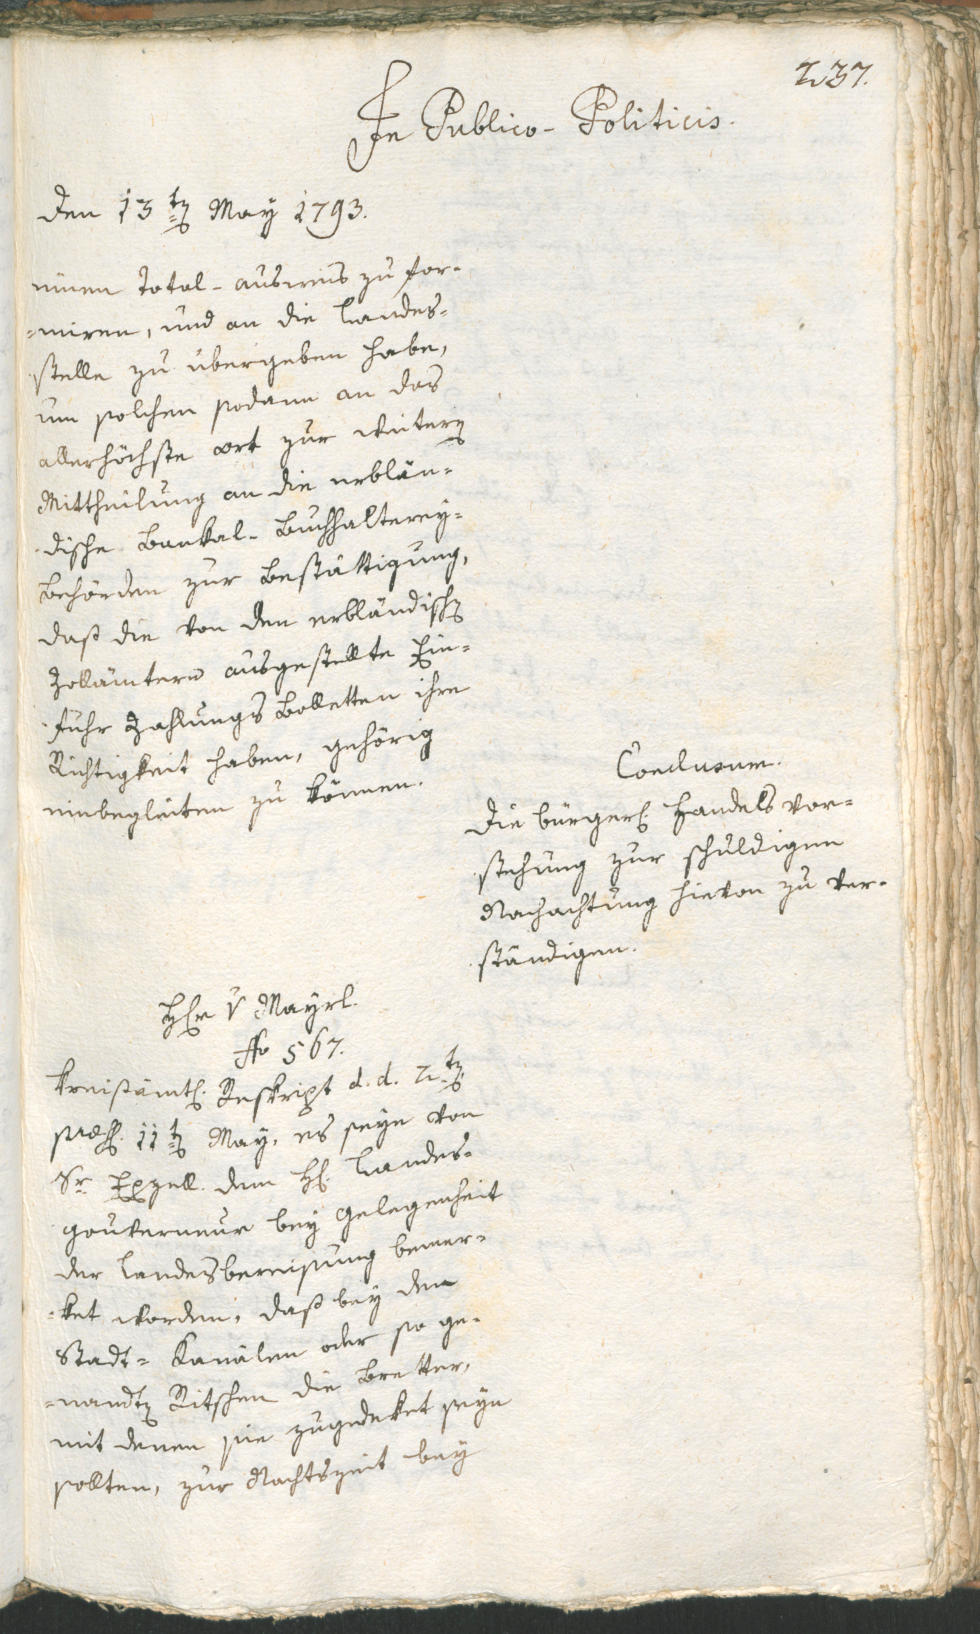 237.
In Publico-Politicis.
den 13ten May 1793.
einen Total-ausweis zu for-
=miren, und an die Landes-
stelle zu übergeben habe,
um solchen sodann an das
allerhöchste ort zur weitern
Mittheilung an die erblän-
dische Bankal-Buchhalterey-
Behörden zur Bestättigung,
daß die von den erbländischen
Zollämtern ausgestellte Ein-
fuhr Zahlungs Bolletten ihre
Richtigkeit haben, gehörig
einbegleiten zu können.
Conclusum.
Die bürgerl. Handels vor-
stehung zur schuldigen
Nachachtung hievon zu ver-
ständigen.
Hr v Mayrl.
No 567.
Kreisämtl. Reskript d. d. 2ten
praes. 11ten May, es seye von
Sr Exzell. dem H. Landes-
gouverneur bey Gelegenheit
der Landesbereisung bemer-
=ket worden, daß bey den
Stadt-Kanälen oder so ge-
=nandten Ritschen die Bretter,
mit denen sie zugedeket seyn
sollten, zur Nachtszeit bey